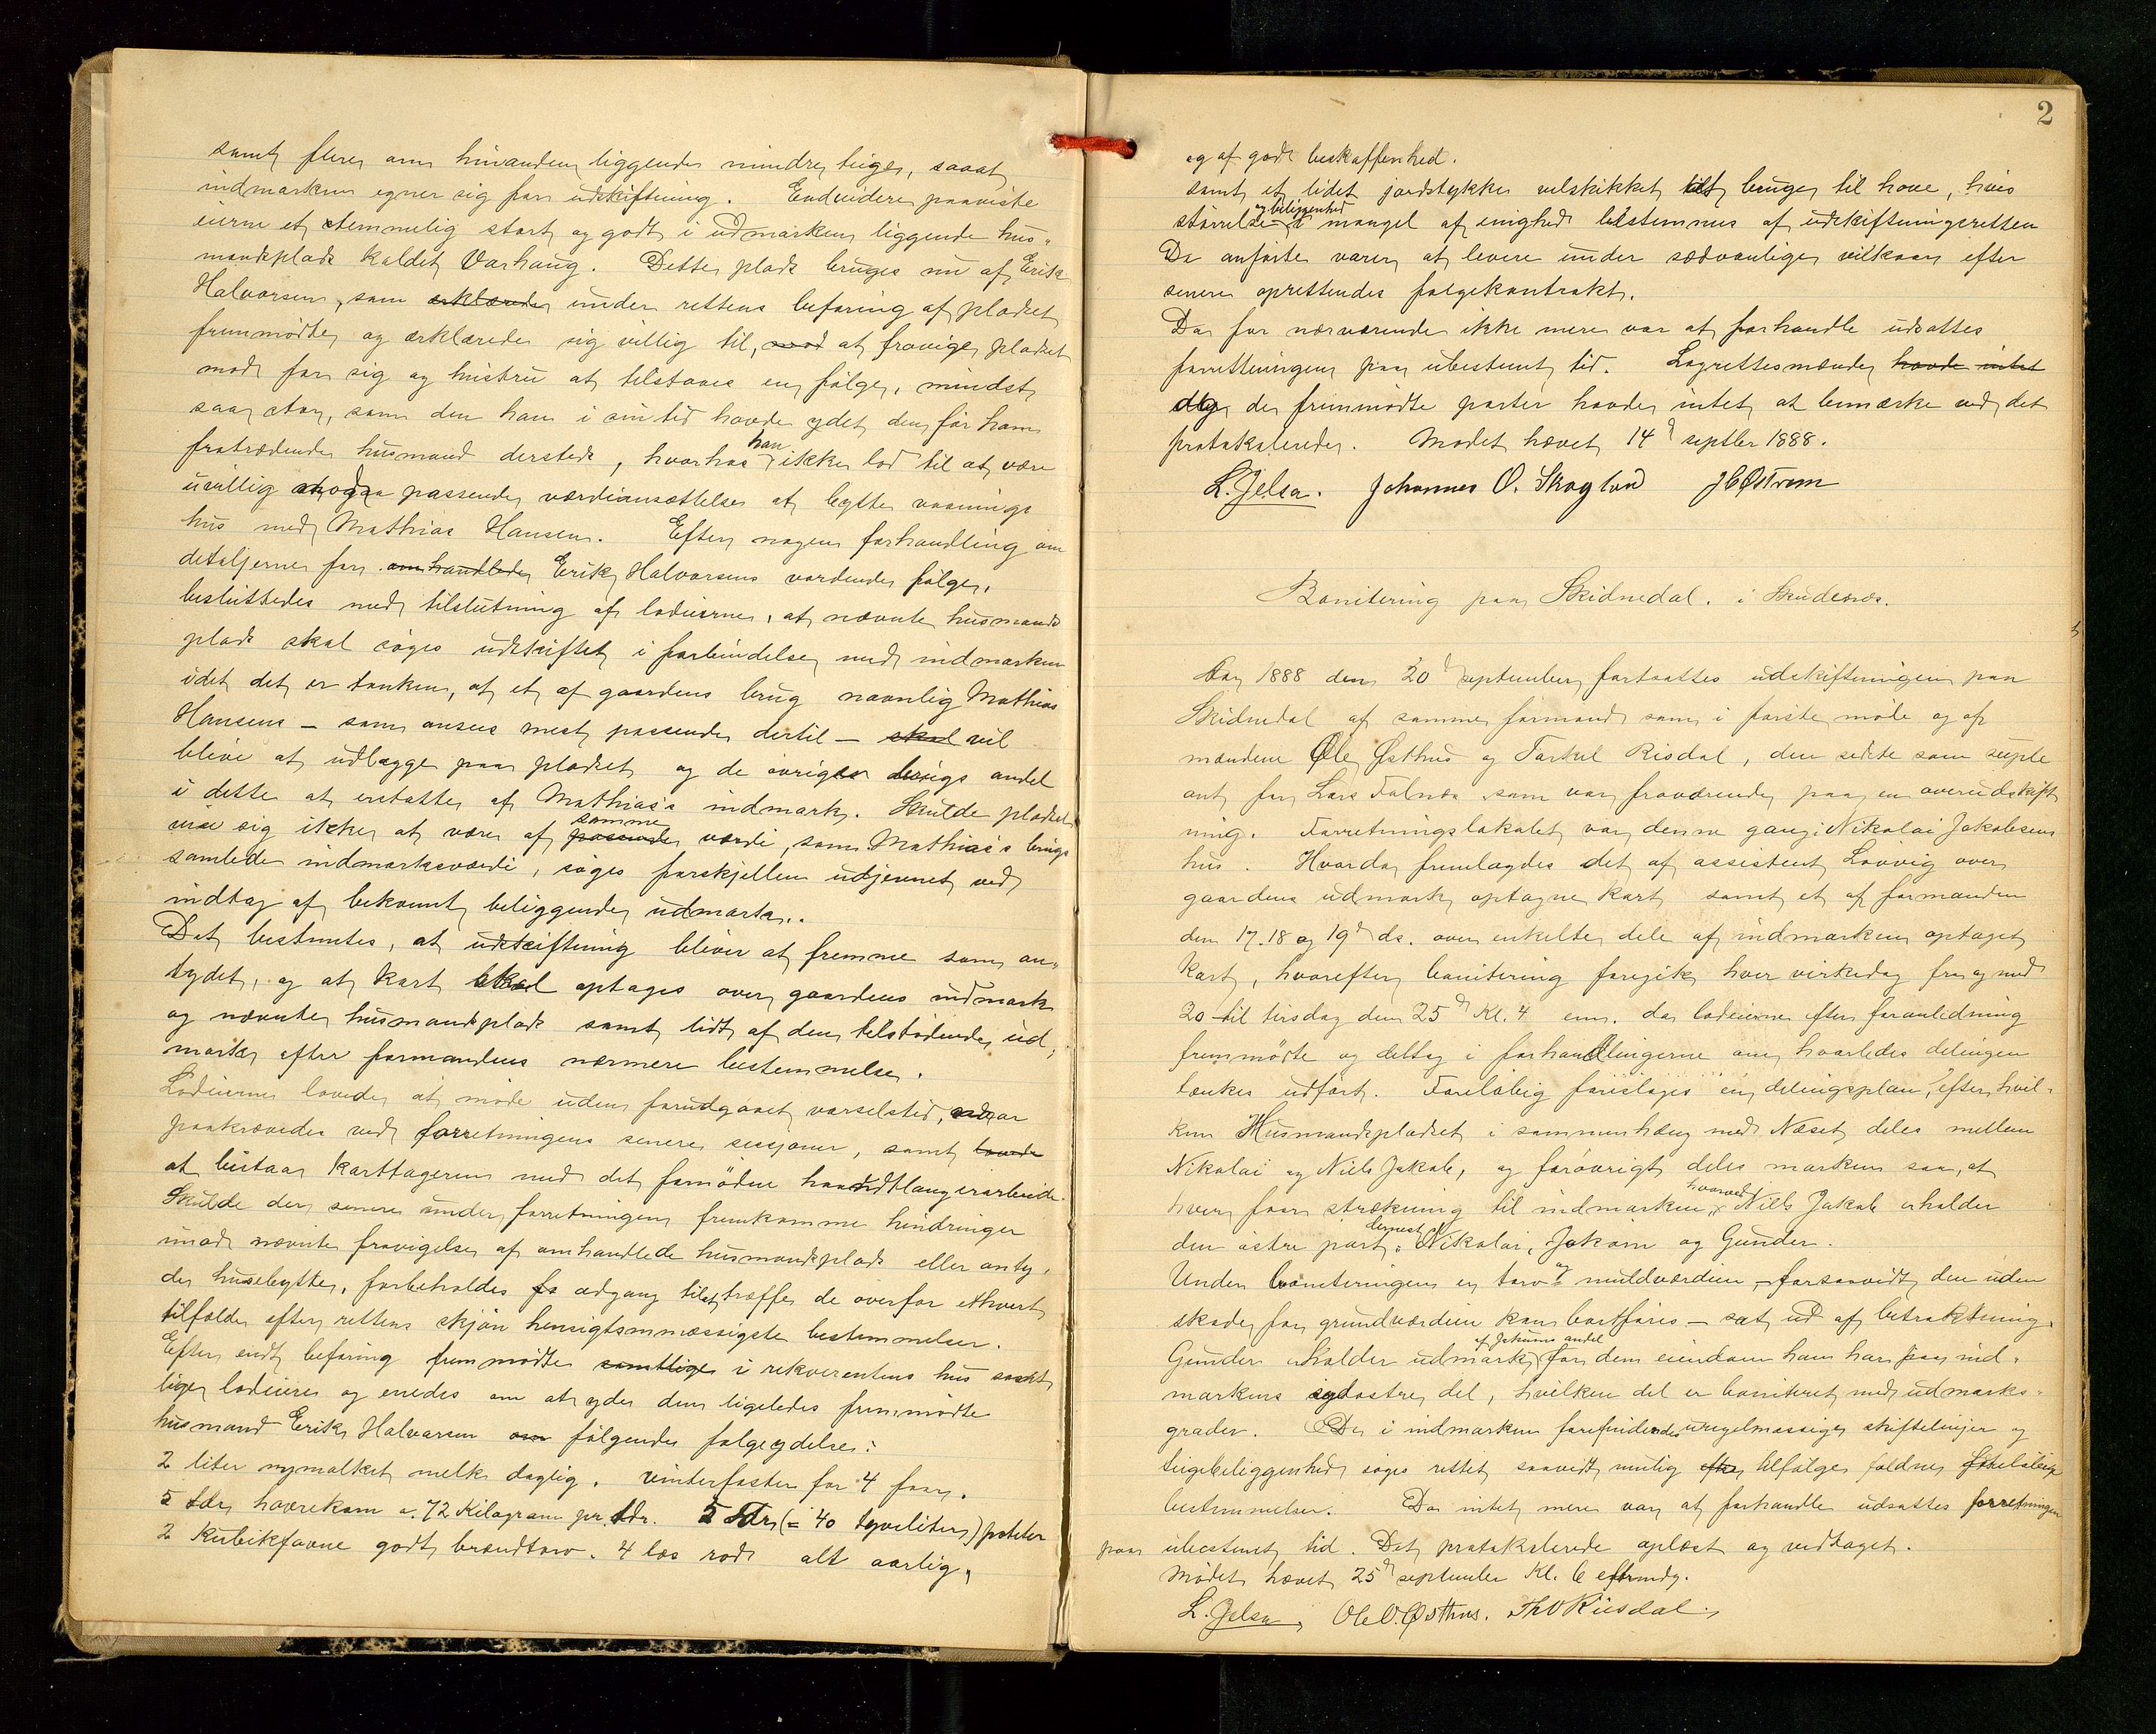 samt flere om hinanden liggende mindre teiger, saaat
indmarken egner sig for udskiftning. Endvidere paaviste
eierne et temmelig stort og godt i udmarken liggende hus-
mandsplads kaldet Varhaug. Dette plads bruges nu af Erik
Halvorsen, som erklærede under rettens befaring af pladset
fremmødte og erklærede sig villig til, mod at fravige pladset
mod for sig og hustru at tilstaaes en følge, mindst
saa stor, som den han i sin tid havde ydet den før ham
fratrædende husmand dersteds, hvorhos han ikke lod til at være
uvillig til paa passende værdiansættelse at bytte vaanings
hus med Mathias Hansen. Efter nogen forhandling om
detaljerne for omhandlede Erik Halvorsens vordende følge,
besluttedes med tilslutning af lodeierne, at nævnte husmands
plads skal søges udskiftet i forbindelse med indmarken
idet det er tanken, at et af gaardens brug navnlig Mathias
Hansens – som ansees mest passende dertil – skal vil
blive at udlægge paa pladset og de øvriges brugs andel
i dette at erstattes af Mathias's indmark. Skulde pladset
vise sig ikke at være af passende samme værdi, som Mathias's brugs
samlede indmarksværdi, søges forskjellen udjevnet ved
indtag af bekvemt beliggende udmark.
Det bestemtes, at udskiftning bliver at fremme som an-
tydet, og at kart skal optages over gaardens indmark
og nævnte husmandsplads samt lidt af den tilstødende ud-
mark efter formandens nærmere bestemmelse.
Lodeierne lovede at møde uden forudgaaet varselstid, naar
paakrævedes ved forretningens senere sessjoner, samt lovede
at bistaa karttageren med det fornødne haandtlangerarbeide.
Skulde der senere under forretningen fremkomme hindringer
imod nævnte fravigelse af omhandlede husmandsplads eller anty-
de husebytte, forbeholdes fo adgang til at træffe de overfor ethvert
tilfælde efter rettens skjøn hensigtsmæssigste bestemmelser.
Efter endt befaring fremmødte samtlige i rekverentens hus samt
lige lodeiere og enedes om at yde den ligeledes fremmødte
husmand Erik Halvorsen om følgende følgeydelse:
2 liter nymalket melk daglig. vinterfoster for 4 faar.
5 tdr havrekorn a. 72 Kilogram pr. tdr. 5 Tdr (= 40 tyveliter) poteter
2 Kubikfavne godt brændtorv. 4 læs rod alt aarlig,
2
og af god beskaffenhed.
samt et lidet jordstykke velskikket til bruge til have, hvis
størrelse og beliggenhed i mangel af enighed bestemmes af udskiftningsretten
De anførte varer at levere under sædvanlige vilkaar efter
senere oprettendes følgekontrakt.
Da for nærværende ikke mere var at forhandle udsattes
forretningen paa ubestemt tid. Lagrettesmænde havde intet
og de fremmødte parter havde intet at bemærke ved det
protokolerede. Mødet hævet 14d septbr 1888.
L. Jelsa. Johannes O. Skogland JCØstrem
Bonitering paa Skidnedal. i Skudesnæs.
Aar 1888 den 20d september fortsattes udskiftningen paa
Skidnedal af samme formand som i første møde og af
mændene Ole Østhus og Torkel Risdal, den sidste som suple
ant for Lars Falnes som var fraværende paa en overudskift
ning. Forretningslokalet var denne gang i Nikolai Jakobsens
hus. Hvorda fremlagdes det af assistent Løvvig over
gaardens udmark optagne kart samt et af formanden
den 17. 18 og 19d ds. over enkelte dele af indmarken optaget
kart, hvorefter bonitering foregik hver virkedag fra og med
20 til tirsdag den 25d Kl. 4 em. da lodeierne efter foranledning
fremmødte og deltog i forhandlingerne om, hvorledes delingen
tænkes udført. Foreløbig foresloges en delingsplan, efter hvil-
ken Husmandspladset i sammenhæng med Næset deles mellem
Nikolai og Niels Jakob, og forøvrigt deles marken saa, at
hver faar strækning til indmarken, hvorved Niels Jakob erholder
den østre part, dernest Nikolai, Jokom og Gunder.
Under boniteringen er torv og muldværdien – forsaavidt den uden
skade for grundværdien kan bortføres – sat ud af betraktning.
Gunder erholder udmark af Jokums andel for den eiendom han har paa ind-
markens sydøstre del, hvilken del er boniteret med udmarks-
grader. De i indmarken forefindende uregelmæssige skiftelinjer og
teigebeliggenhed søges rettet saavidt mulig efter tilfølge foldne foreløbige
bestemmelser. Da intet mere var at forhandle udsattes forretningen
paa ubestemt tid. Det protokolerede oplæst og vedtaget.
Mødet hævet 25d september Kl. 6 eftermdg.
L. Jelsa, Ole O. Østhus. ThO Riisdal.